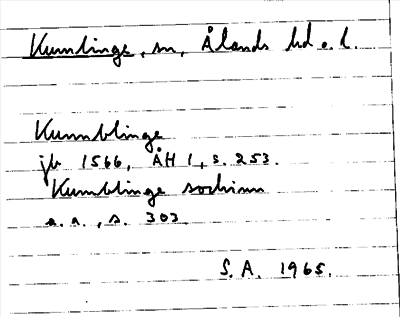 Kumlinge, sn, Ålands hd o. l.
Kumblinge
jb 1566, ÅH 1, s. 253.
Kumblinge sochnn
a.a., s. 303
S.A. 1965.